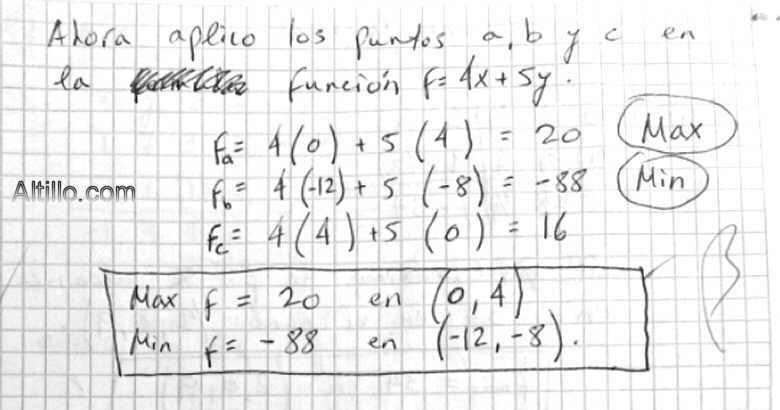 Ahora aplico los puntos a, b y c en
la función f= 4x + 5y.
fa= 4(0) + 5 (4) = 20 Max
Altillo.com
fb= 4 (-12) + 5 (-8) = -88 Min
fc= 4(4) +5 (0) = 16
Max f = 20 en (0, 4)
Min f= -88 en (-12, -8).